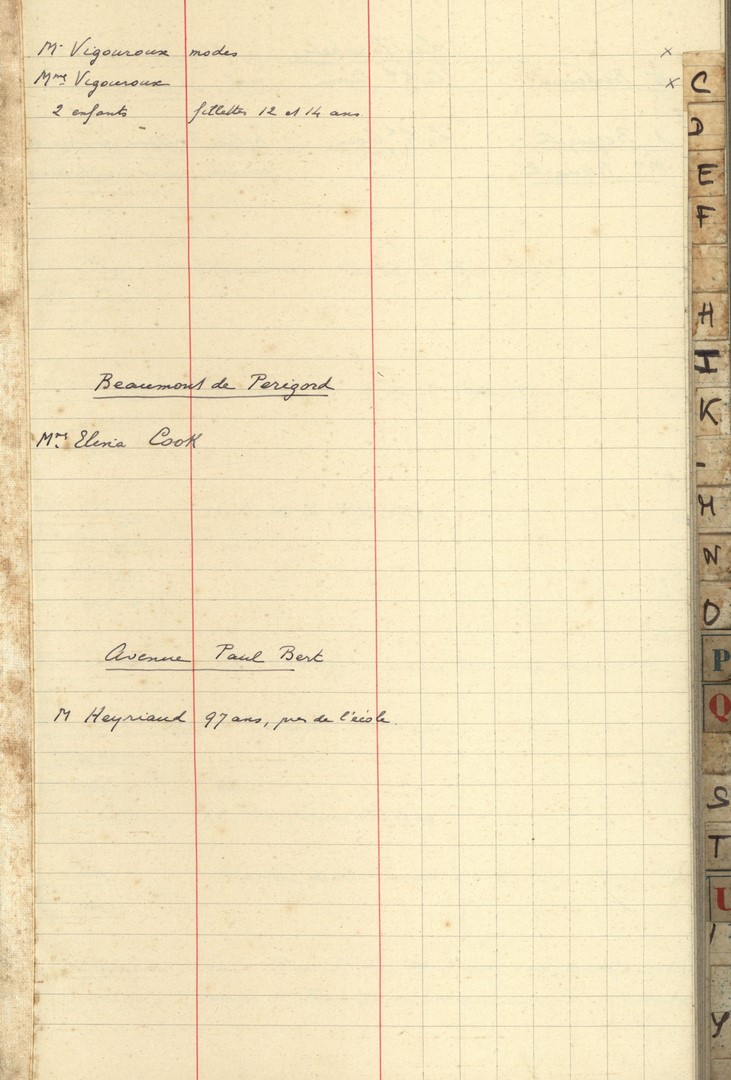 Mr Vigouroux modes x
Mme Vigouroux x
2 enfants fillettes 12 et 14 ans
Beaumont de Perigord
Mme Cook
Avenue Paul Bert
M Heyriaud 97 ans, pres de l'école.
C
E
F
H
I
K
M
N
O
P
Q
S
T
U
Y